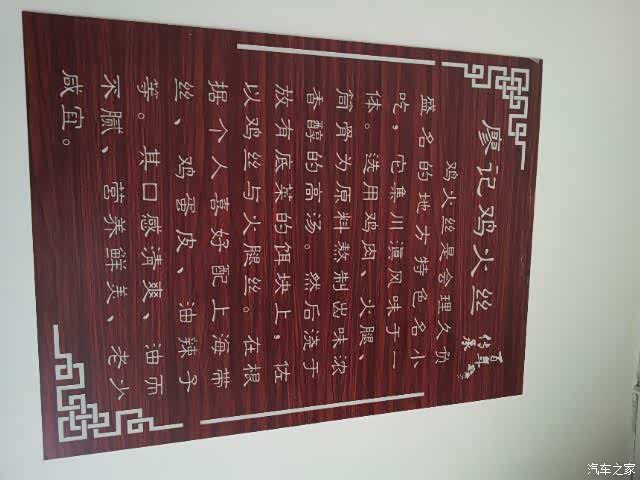 廖记鸡火丝
鸡火丝是会理久负
盛名的地方特色名小
吃，它集川滇风味于一
体。选用鸡肉、火腿、
筒骨为原料熬制出味浓
香醇的高汤。然后浇于
放有底菜的饵块上，佐
以鸡丝与火腿丝。在根
据个人喜好配上海带
丝、鸡蛋皮、油辣子
等。其口感清爽、油而
不腻、营养鲜美、老少
咸宜。
汽车之家